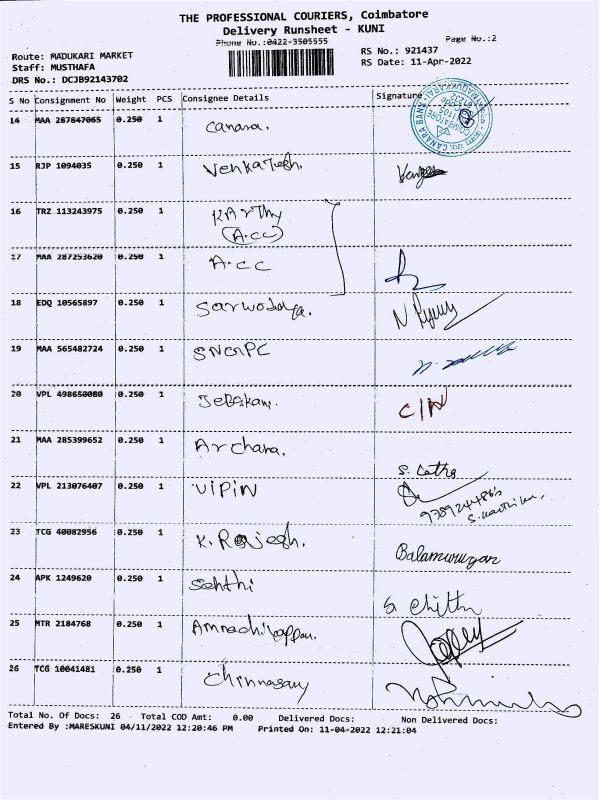 THE PROFESSIONAL COURIERS, Coimbatore
Delivery Runsheet - KUNI
Phone No.:0422-3505555
Page No.:2
Route: MADUKARI MARKET
RS No.: 921437
Staff: MUSTHAFA
RS Date: 11-Apr-2022
DRS No.: DCJB92143702
S No Consignment No Weight PCS Consignee Details Signature
14 MAA 287847065 0.250 1 Canara. CANARA BANK
15 RJP 1094035 0.250 1 Venkatesh.
16 TRZ 113243975 0.250 1 KArthy
(A.CC)
17 MAA 287253620 0.250 1 A.CC
18 EDQ 10565897 0.250 1 Sarwodaya.
19 MAA 565482724 0.250 1 SNGPC
20 VPL 498650080 0.250 1 Jebakani. C/N
21 MAA 285399652 0.250 1 Archana. S. Latha
22 VPL 213076407 0.250 1 VIPIN
S. Karthika,
23 TCG 40082956 0.250 1 K. Rajesh. Balamurugan
24 APK 1249620 0.250 1 Senthi S Chitha
25 MTR 2184768 0.250 1
26 TCG 10041481 0.250 1 Chinnasamy
Total No. Of Docs: 26 - Total COD Amt: 0.00 Delivered Docs: Non Delivered Docs:
Entered By :MARESKUNI 04/11/2022 12:20:46 PM Printed On: 11-04-2022 12:21:04